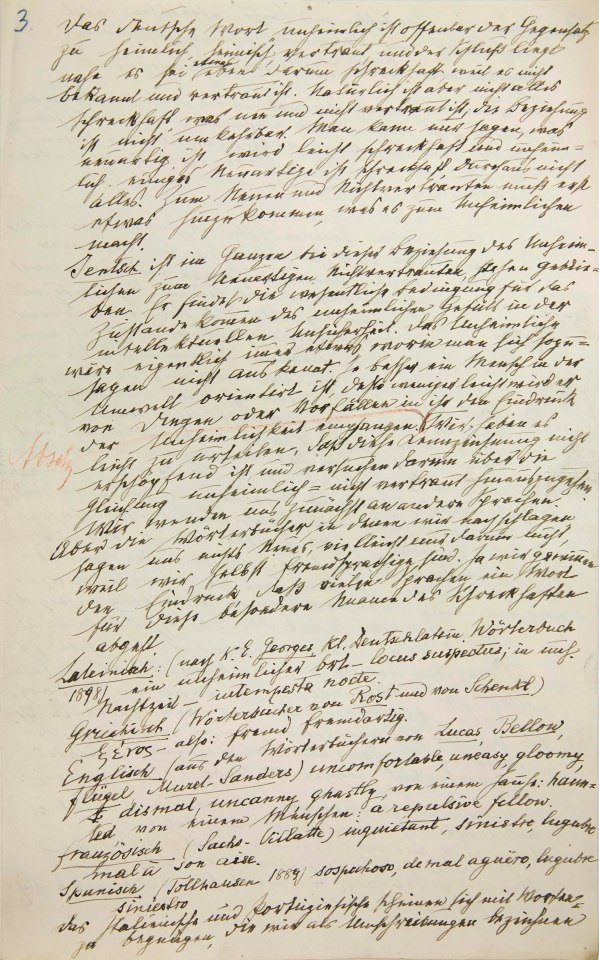 3.
Das deutsche Wort unheimlich ist offenbar der Gegensatz
zu heimlich, heimisch, vertraut und der Schluß liegt
nahe es sei etwas eben darum schreckhaft weil es nicht
bekannt und vertraut ist. Natürlich ist aber nicht alles
schreckhaft was neu und nicht vertraut ist, die Beziehung
ist nicht umkehrbar. Man kann nur sagen, was
neuartig ist, wird leicht schreckhaft und unheim-
lich, einiges Neuartige ist schreckhaft durchaus nicht
alles. Zum Neuen und Nichtvertrauten muß erst
etwas hinzukommen, was es zum Unheimlichen
macht.
Jentsch ist im Ganzen bei dieser Beziehung des Unheim-
lichen zum Neuartigen, Nichtvertrauten, stehen geblie-
ben. Er findet die wesentliche Bedingung für das
Zustandekommen des unheimlichen Gefühls in der
intellektuellen Unsicherheit. Das Unheimliche
wäre eigentlich immer etwas, worin man sich sozu-
sagen nicht auskennt. Je besser ein Mensch in der
Umwelt orientirt ist, desto weniger leicht wird er
von Dingen oder Vorfällen in ihr den Eindruck
der Unheimlichkeit empfangen. Wir haben es
Absatz
leicht zu urteilen, daß diese Kennzeichnung nicht
erschöpfend ist und versuchen darum über die
Gleichung unheimlich = nicht vertraut hinauszugehen.
Wir wenden uns zunächst an andere Sprachen.
Aber die Wörterbücher in denen wir nachschlagen
sagen uns nichts Neues, vielleicht nur darum nicht,
weil wir selbst Fremdsprachige sind. Ja wir gewinnen
den Eindruck, daß vielen Sprachen ein Wort
für diese besondere Nuance des Schreckhaften
abgeht.
Lateinisch: (nach K. E. Georges, Kl. Deutschlatein. Wörterbuch
1898) ein unheimlicher Ort – locus suspectus; in unh.
Nachtzeit – intempesta nocte.
Griechisch (Wörterbücher von Rost und von Schenkl)
ξένος – also: fremd fremdartig.
Englisch (aus den Wörterbüchern von Lucas, Bellow,
Flügel, Muret-Sanders) uncomfortable, uneasy, gloomy
dismal, uncanny, ghastly, von einem Hause: haun-
ted von einem Menschen: a repulsive fellow.
Französisch (Sachs-Villatte) inquiétant, sinistre, lugubre
mal à son aise.
Spanisch (Tollhausen 1889) sospechoso, de mal aguëro, lugubre
siniestro
das Italienische und Portugiesische scheinen sich mit Worten
zu begnügen, die wir als Umschreibungen bezeichnen